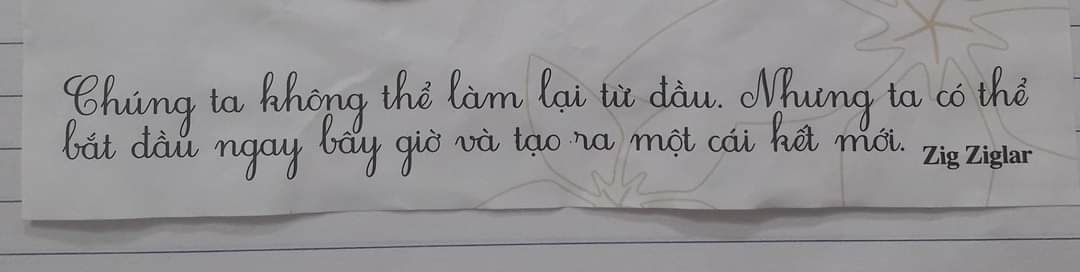 Chúng ta không thể làm lại từ đầu. Nhưng ta có thể
bắt đầu ngay bây giờ và tạo ra một cái kết mới. Zig Ziglar